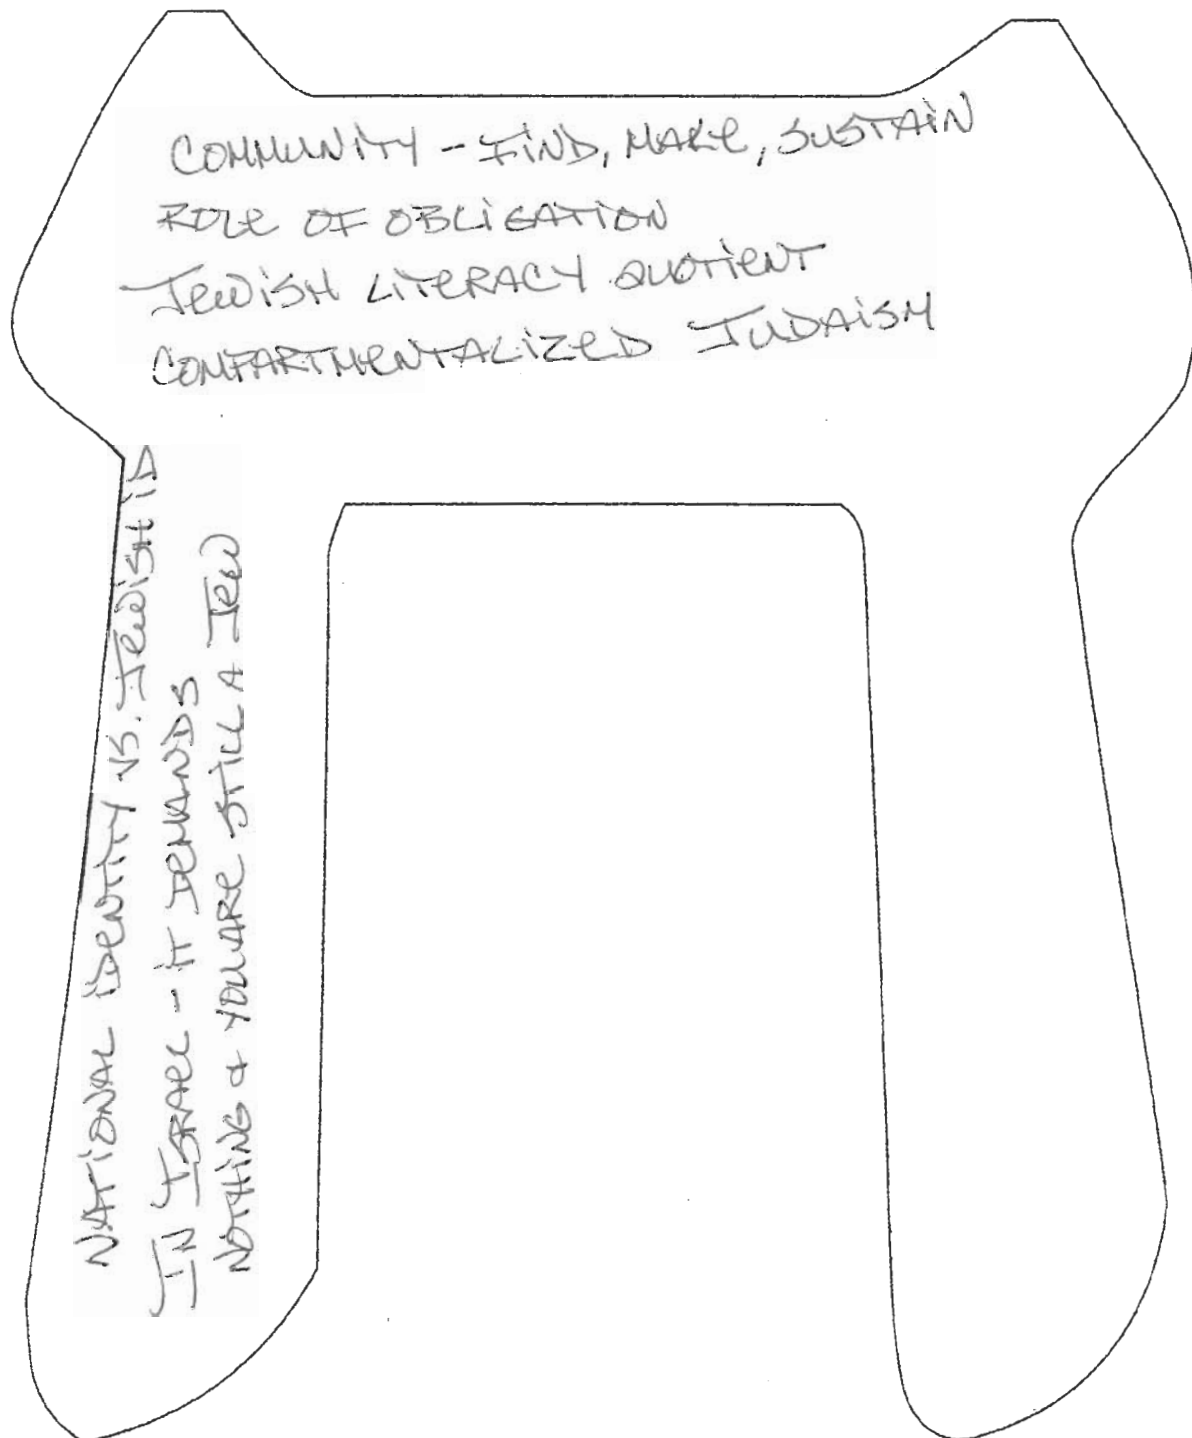 COMMUNITY - FIND, MAKE, SUSTAIN
ROLE OF OBLIGATION
JEWISH LITERACY QUOTIENT
COMPARTMENTALIZED JUDAISM
NATIONAL IDENTITY VS. JEWISH ID
IN ISRAEL - IT DEMANDS
NOTHING & YOU ARE STILL A JEW